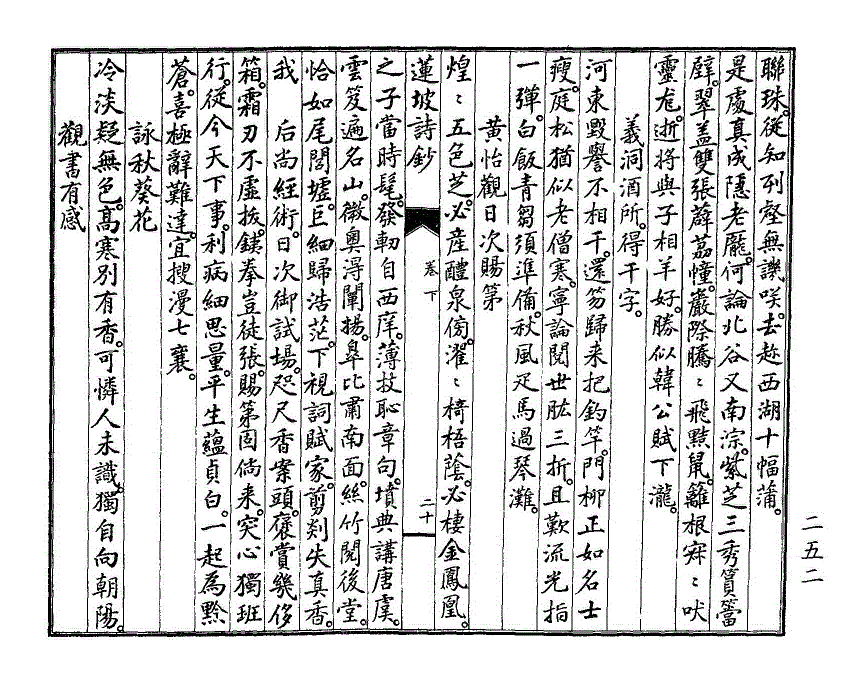 聯珠。從知列壑無譏咲。去趁西湖十幅蒲。
是處真成隱老龐。何論北谷又南淙。紫芝三秀篔簹
壁。翠蓋雙張薜荔幢。巖際騰〻飛黠鼠。籬根寐〻吠
靈尨。逝將與子相羊好。勝似韓公賦下瀧。
義洞酒所。得干字。
河東毀譽不相干。還笏歸来把釣竿。門柳正如名士
瘦。庭松猶似老僧寒。寧論閱世肱三折。且歎流光指
一彈。白飯青芻須準備。秋風疋馬過琴灘。
黃怡觀日次賜第
煌〻五色芝。必産醴泉傍。濯〻椅梧蔭。必棲金鳳凰。
蓮坡詩鈔
卷下
二十
之子當時髦。發軔自西庠。薄技恥章句。墳典講唐虞。
雲笈遍名山。微奥淂闡揚。皐比肅南面。絲竹閱後堂。
恰如尾閭墟。巨細歸浩茫。下視詞賦家。剪剡失真香。
我 后尚經術。日次御試場。咫尺香案頭。褒賞幾侈
箱。霜刃不虛拔。銕拳豈徒張。賜第固倘来。突心獨班
行。從今天下事。利病細思量。平生蘊貞白。一起為黔
蒼。喜極辭難達。宜搜漫七襄。
詠秋葵花
冷淡疑無色。高寒別有香。可憐人未識。獨自向朝陽。
觀書有感
二五二